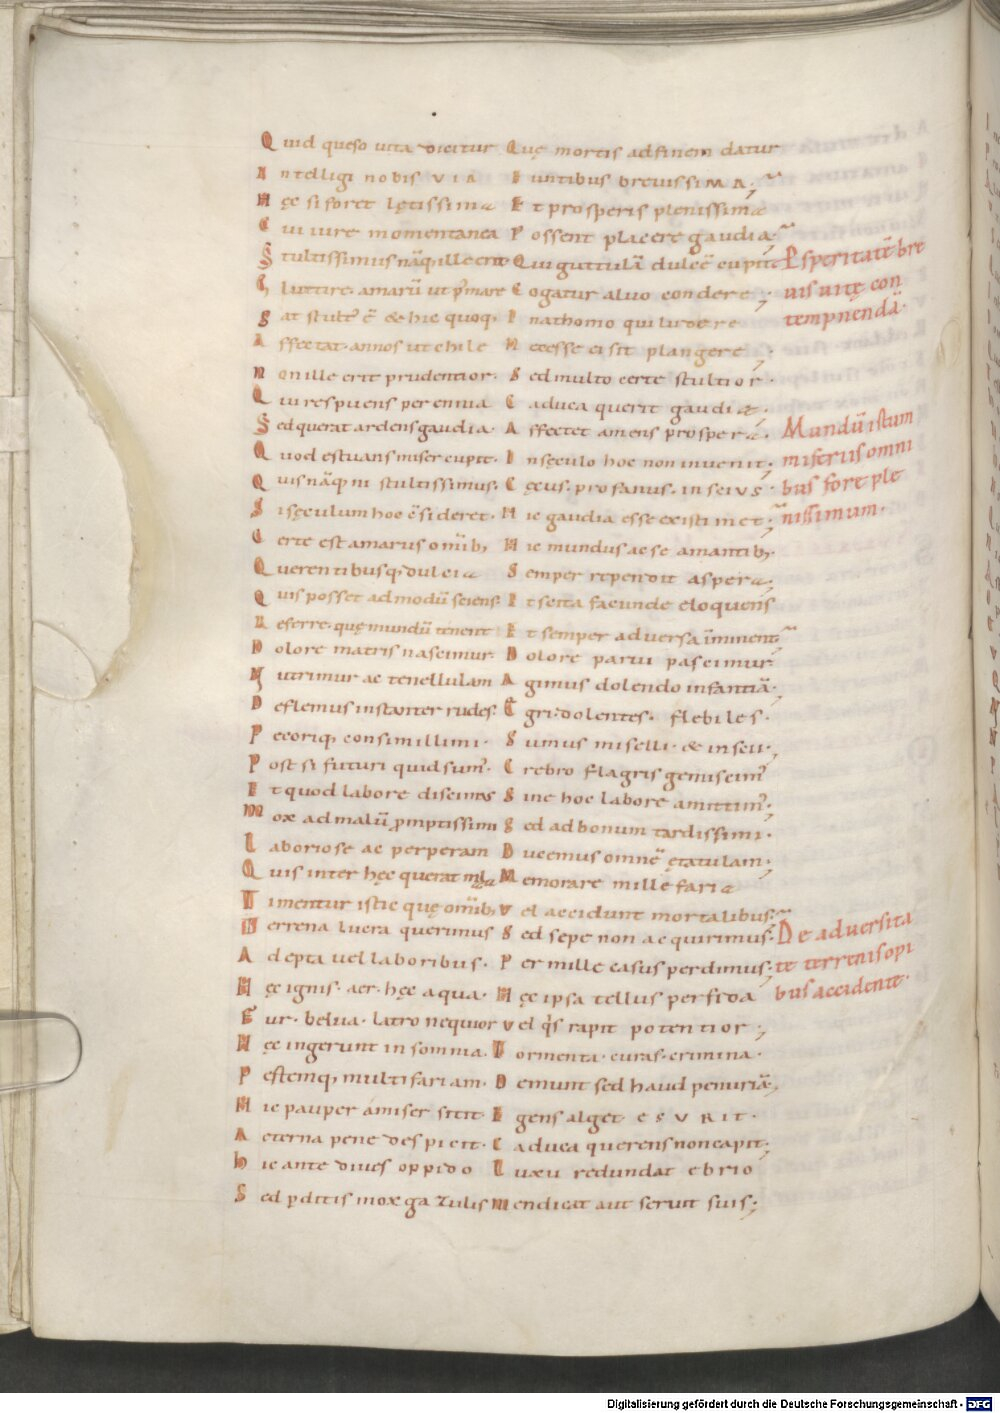 Quid queso uita dicitur Quę mortis ad finem datur
Intelligi nobis VIA Euntibus breuissiMA;
Hęc si foret lętissima Et prosperis plenissima
Cui uiire momentanea Possent placere gaudia;
Stultissimus nāq; ille erit Qui guttulā dulcē cupit
Prosperitatē bre
Gluttire. amarū ut p̄ mare Cogatur aluo condere;
uis uitę con
gat stult᷒ ē & hic quoq; Inathomo qui ludere
tempnendā.
Affectat. annos ut chile Necesse ei sit plangere;
non ille erit prudentior. Sed multo certe stultior.
Qui respuens perennia Caduca querit gaudia;
Sed querat ardens gaudia. Affectet amens prospera.
Mundū istum
Quod estuans miser cupit. In sęculo hoc non inuenit;
miseriis omni
Quis nāq; ni stultissimus. Cęcus. profanus. inscius.
bus fore ple
Si sęculum hoc c̄sideret. Hic gaudia esse existimet;
nissimum.
Certe est amarus omīb; Hic mundus ac se amantib;
Querentibusq; dulcia Semper rependit aspera;
Quis posset admodū sciens. Et scita facunde eloquens
Referre. quę mundū tenent Et semper aduersa īminent;
Dolore matris nascimur. Dolore parui pascimur.
Nutrimur ac tenellulam Agimus dolendo infantiā;
Deflemus instanter rudes. Ęgri. dolentes. flebiles.
Pecoriq; consimillimi. Sumus miselli. & inscii;
Post si futuri quid sum᷒. Crebro flagris gemiscim᷒
Et quod labore discimus Sine hoc labore amittim᷒;
mox ad malū p̄mptissimi Sed ad bonum tardissimi.
Laboriose ac perperam Ducemus omnē ętatulam;
Quis inter hęc querat mala Memorare mille faria
Timentur istic quę omīb; vel accidunt mortalibus;
Terrena lucra querimus Sed sepe non acquirimus;
De aduersita
Adepta uel laboribus. Per mille casus perdimus;
te terrenis opi
Hęc ignis. aer. hęc aqua. Hęc ipsa tellus perfida
bus accidente.
Fur. belua. latro nequior vel q̇s rapit potentior;
Hęc ingerunt insomnia. Tormenta. curas. crimina.
Pestemq; multifariam. Demunt sed haud penuriā;
Hic pauper āmiser sitit. Egens alget. ESURIT.
Aeterna pene despicit. Caduca querens non capit;
hic ante diues oppido Luxu redundat ebrio
Sed p̄ditis mox gazulis mendicat aut seruit suis;
Digitalisierung gefördert durch die Deutsche Forschungsgemeinschaft - DFG